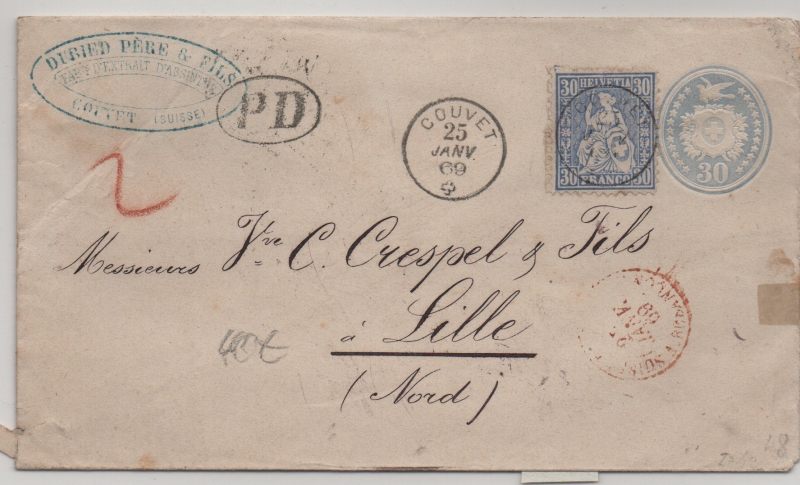 DUBIED PÈRE & FILS
FABT D'EXTRAIT D'ABSINTHE
COUVET (SUISSE)
PD
COUVET
25
JANV.
69
30 HELVETIA 30
30 FRANCO 30
30
2
Messieurs Vve C. Crespel & Fils
à Lille
(Nord)
40€